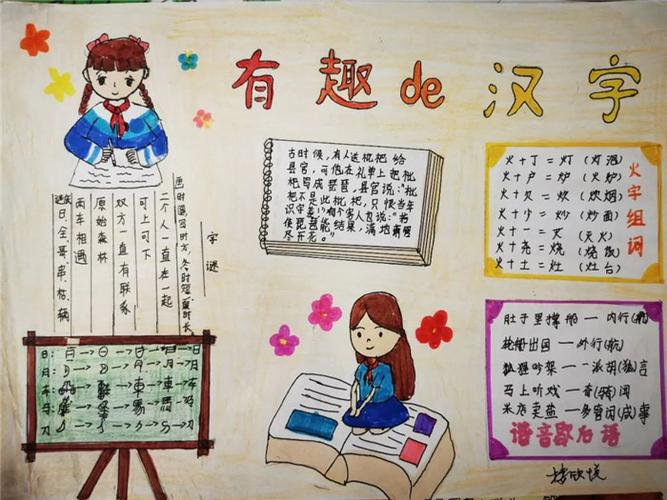 有趣de汉字
古时候，有人送枇杷给
县官，可他在礼单上把枇
杷写成琵琶，县官说："枇
杷不是此枇杷，只恨当年
识字差！"有个客人也说："若
使琵琶能结果，满地箫管
尽开花。"
火字组词
火+丁=灯(灯泡)
火+户=炉(火炉)
火+欠=炊(炊烟)
火+少=炒(炒面)
火+一=灭(灭火)
火+尧=烧(烧饭)
火+土=灶(灶台)
字谜
画时圆写时方，冬时短夏时长
二个人一直在一起
可上可下
双方一直有联系
原始森林
两车相遇
谜底：日、仝、哥、串、格、辆
日：
月：
车：
马：
刀：
日
月
车
马
刀
肚子里撑船——内行(航)
轮船出国——外行(航)
狐狸吵架——一派胡(狐)言
马上听戏——奇(骑)闻
米店卖盐——多管闲(咸)事
谐音歇后语